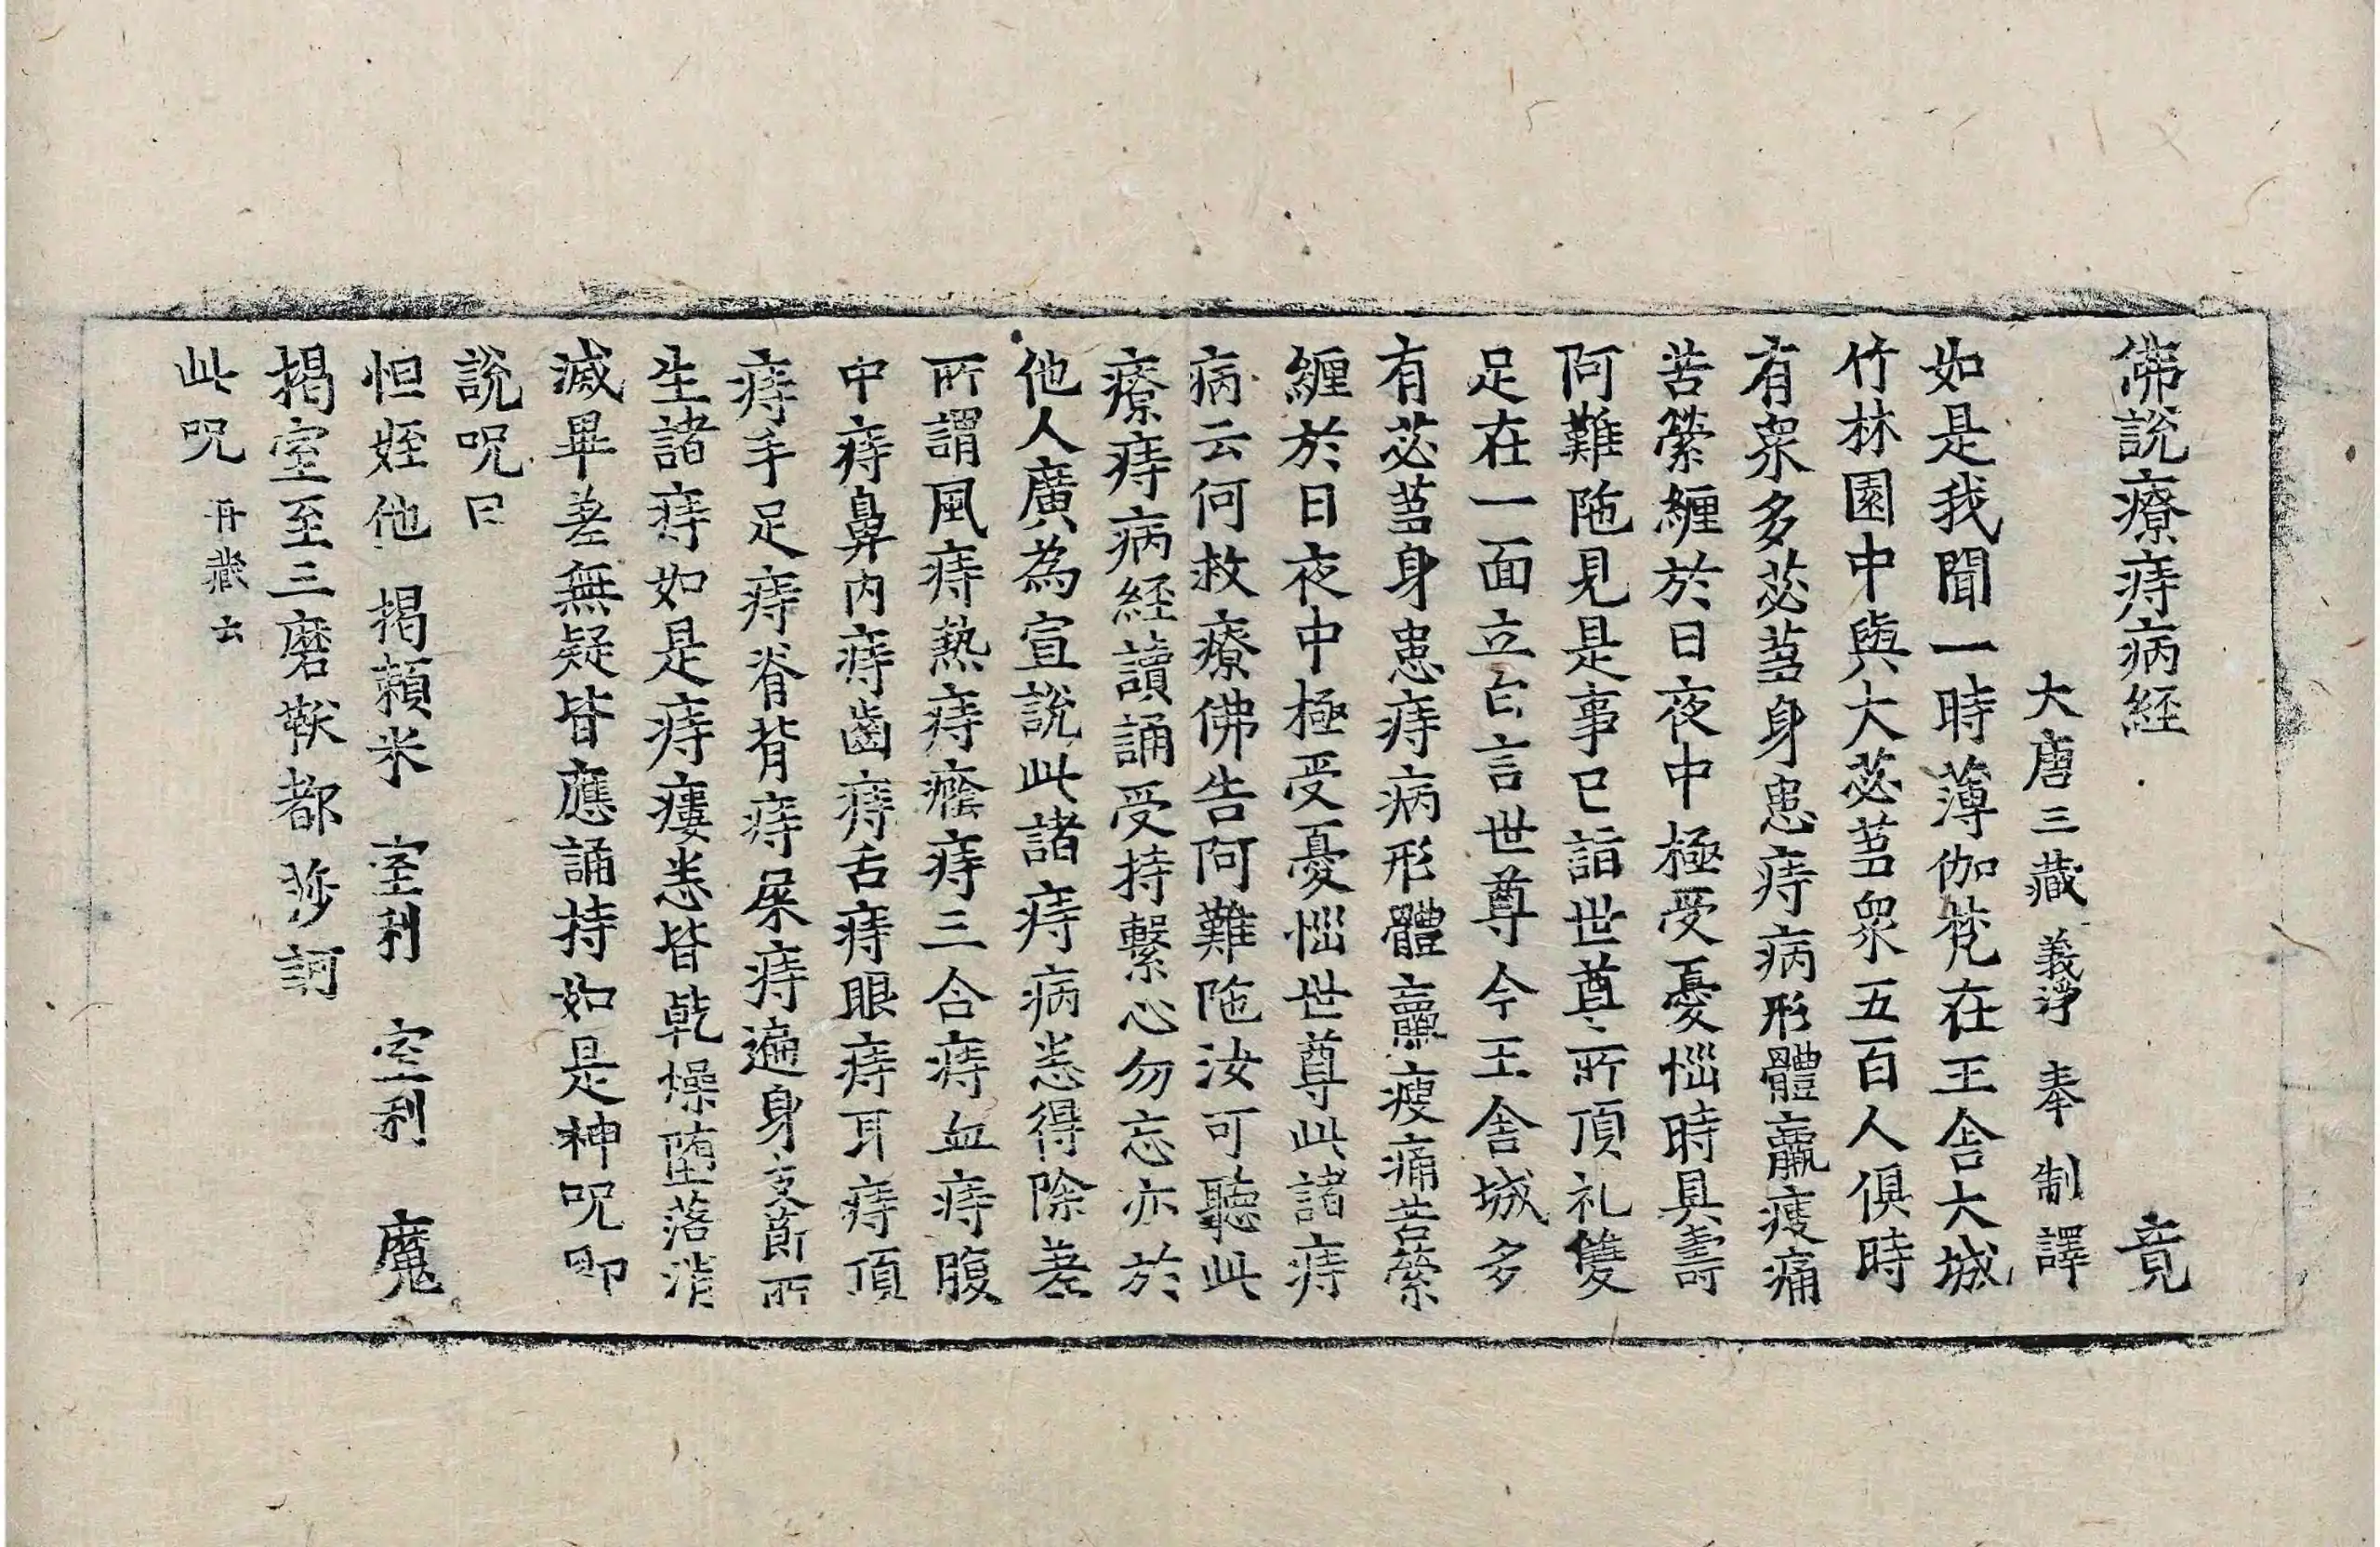 佛說療痔病経 竟
大唐三藏 義淨 奉 制 譯
如是我聞一時薄伽梵在王舍大城
竹林園中與大苾芻衆五百人俱時
有衆多苾芻身患痔病形體羸瘦痛
苦縈纏於日夜中極受憂惱時具壽
阿難陁見是事已詣世尊所頂礼雙
足在一面立白言世尊今王舍城多
有苾芻身患痔病形體羸瘦痛苦縈
纏於日夜中極受憂惱世尊此諸痔
病云何救療佛告阿難陁汝可聽此
療痔病経讀誦受持繫心勿忘亦於
他人廣為宣說此諸痔病悉得除差
所謂風痔熱痔癊痔三合痔血痔腹
中痔鼻內痔齒痔舌痔眼痔耳痔頂
痔手足痔脊背痔屎痔遍身支莭所
生諸痔如是痔瘻悉皆乾燥墮落消
滅畢差無疑皆應誦持如是神呪即
說呪曰
怛姪他 揭賴米 室利 室利 魔
揭室至三磨𩎟都 莎訶
此呪 丹蔵云